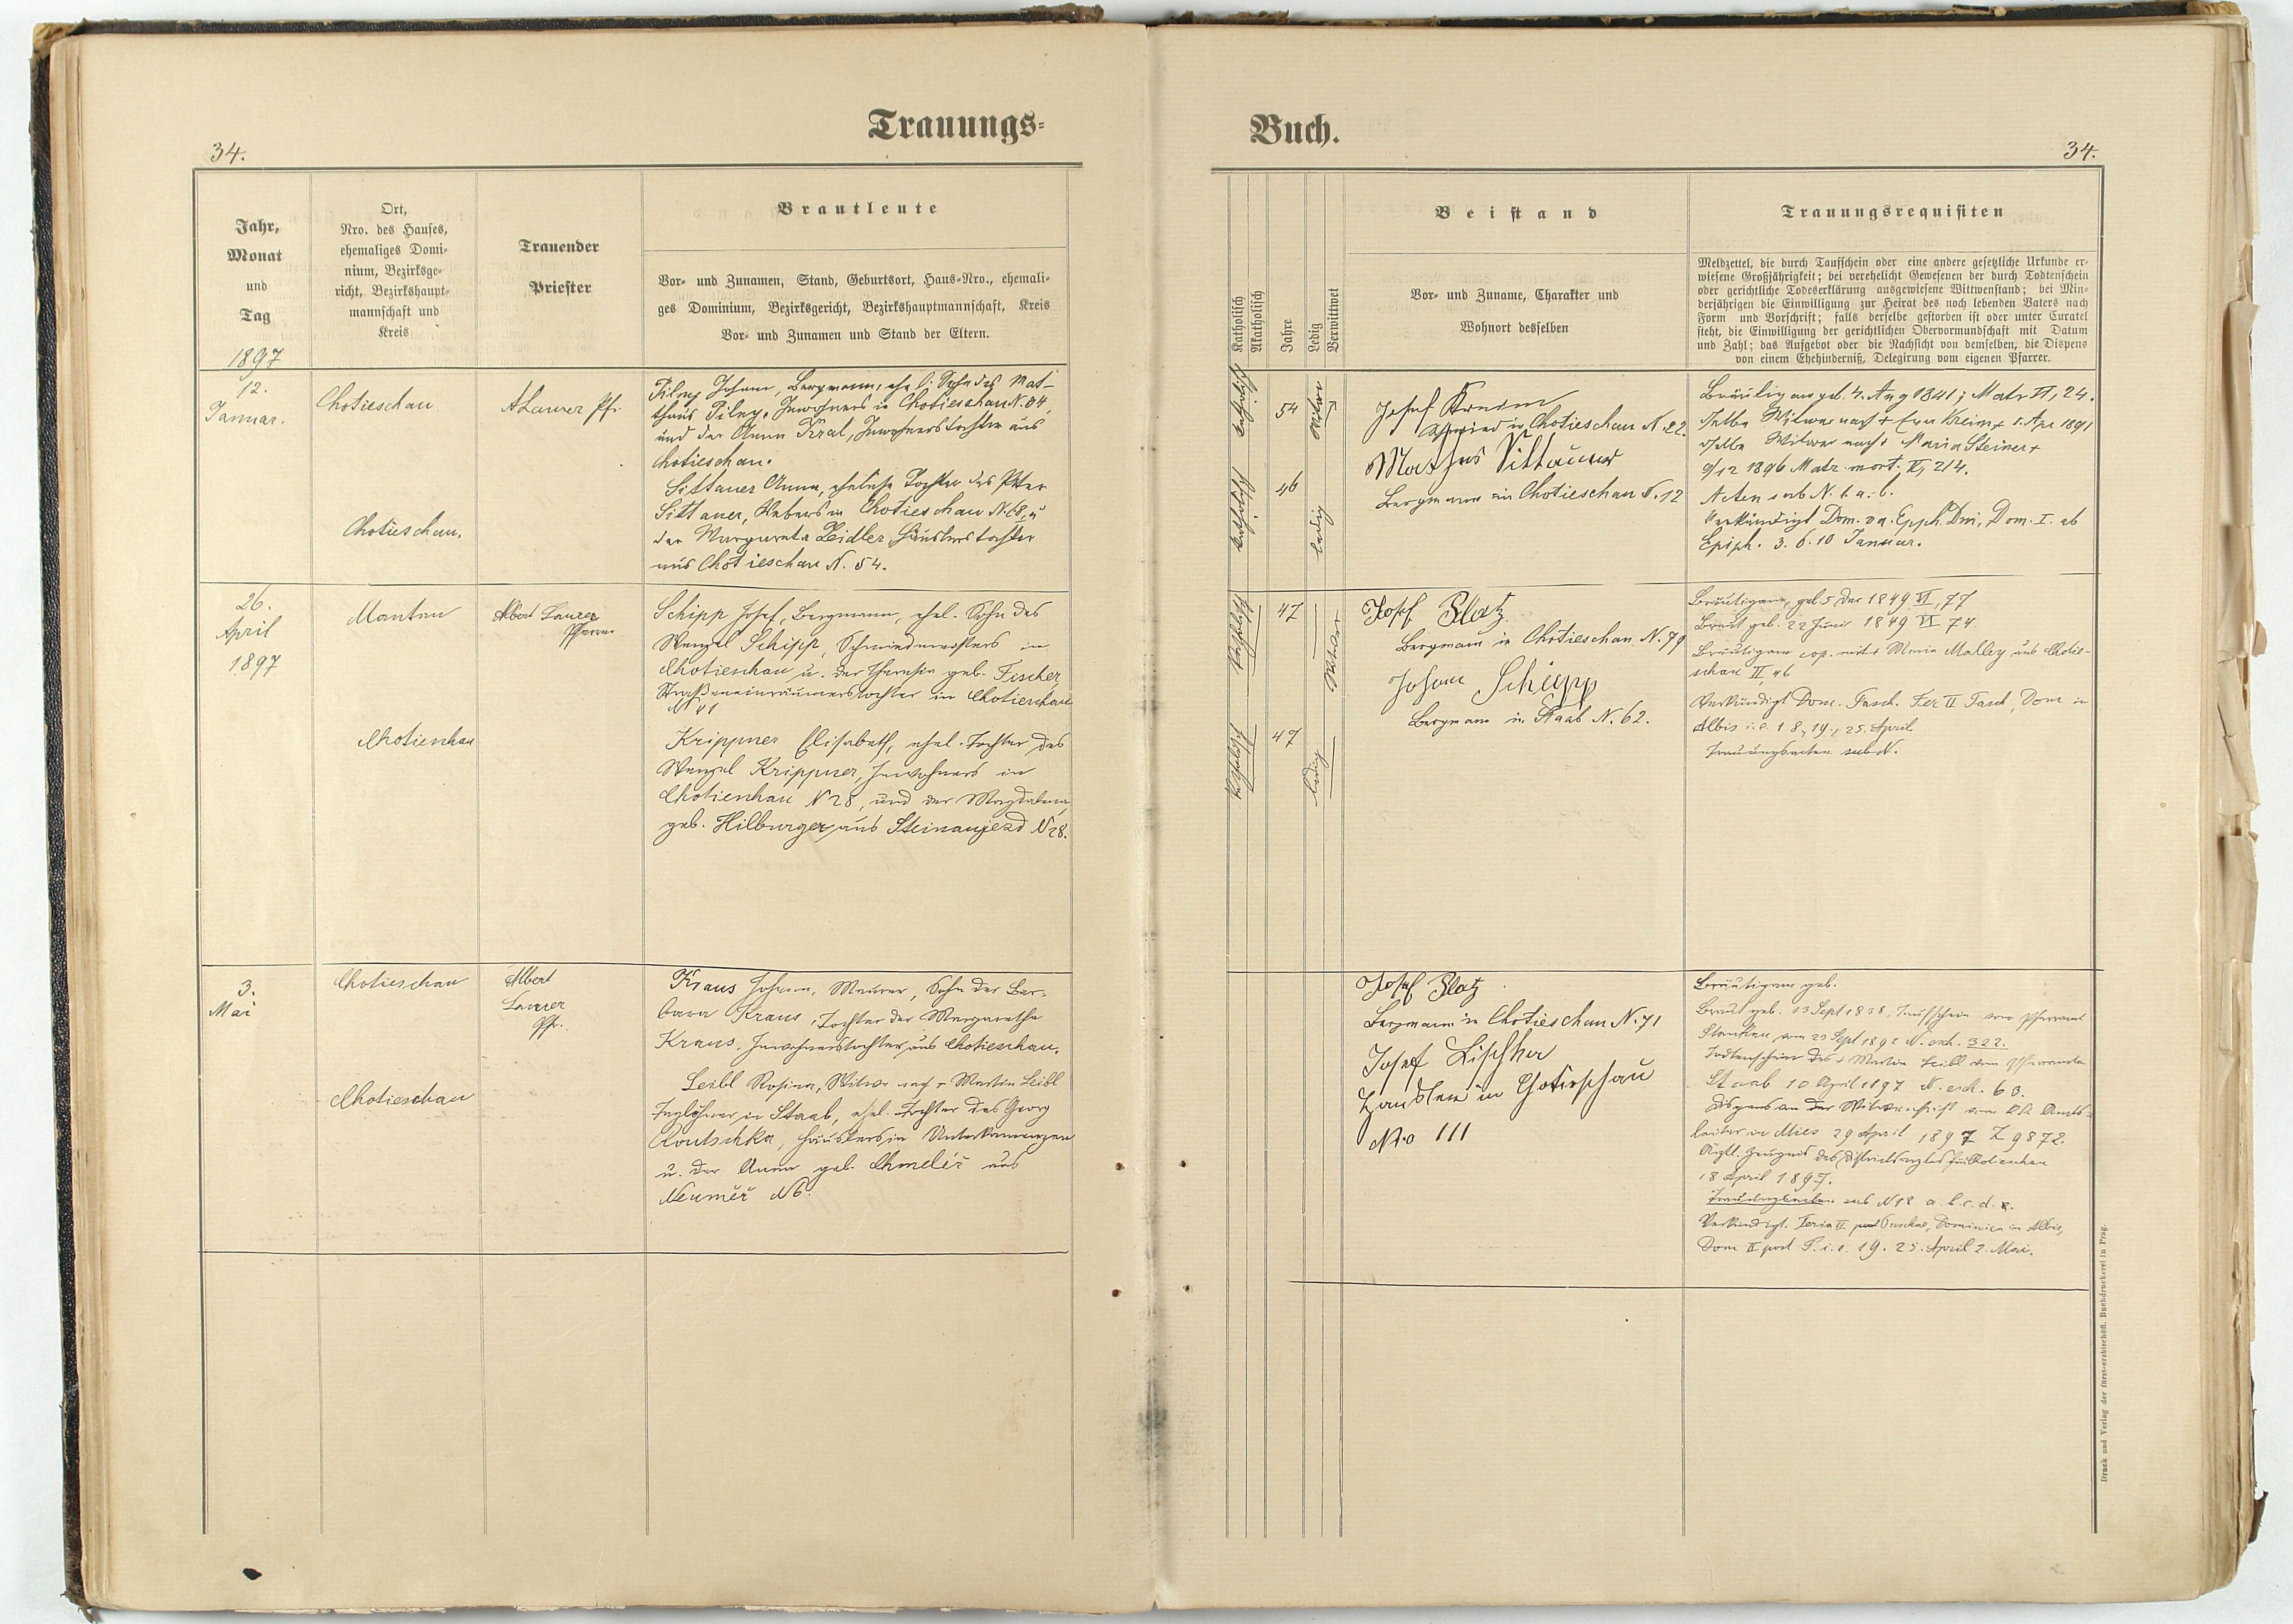 Trauungs-
34.
Jahr,
Monat
und
Tag
1897
Ort,
Nro. des Hauses,
ehemaliges Domi-
nium, Bezirksge-
richt, Bezirkshaupt-
mannschaft und
Kreis
Trauender
Priester
Brautleute
Vor- und Zunamen, Stand, Geburtsort, Haus-Nro., ehemali-
ges Dominium, Bezirksgericht, Bezirkshauptmannschaft, Kreis
Vor- und Zunamen und Stand der Eltern.
12.
Januar.
Chotieschau
A Laurer Pfr.
Pilny Johann, Bergmann, ehel. Sohn des Mat-
thäus Pilny, Inwohners in Chotieschau N. 84,
und der Anna Kral, Inwohnerstochter aus
Chotieschau.
Chotieschau.
Sittauer Anna, eheliche Tochter des Peter
Sittauer, Webers in Chotieschau N. 68, u
der Margareta Zeidler, Häuslerstochter
aus Chotieschau N. 54.
26.
April
1897
Mantau
Albert Laurer
Pfarrer
Schipp Josef, Bergmann, ehel. Sohn des
Wenzel Schipp, Schmiedmeisters in
Chotieschau u. der Theresia geb. Fischer,
Straßeneinräumerstochter in Chotieschau
N 41
Chotieschau
Krippner Elisabeth, ehel. Tochter des
Wenzel Krippner, Inwohners in
Chotieschau N 28, und der Magdalena
geb. Hilburger aus Steinaujezd N 28.
3.
Mai
Chotieschau
Albert
Laurer
Pfr.
Kraus Johann, Maurer, Sohn der Bar-
bara Kraus, Tochter der Margaretha
Kraus, Inwohnerstochter aus Chotieschau.
Chotieschau
Leibl Rosina, Witwe nach + Martin Leibl
Taglöhner in Staab, ehel. Tochter des Georg
Koutschka, Häuslers in Unterkamenzen
u. der Anna geb. Chmelíř aus
Neuměř N 6.
Buch.
34.
Katholisch
Akatholisch
Jahre
Ledig
Verwittwet
Beistand
Vor- und Zuname, Charakter und
Wohnort desselben
Trauungsrequisiten
Meldzettel, die durch Taufschein oder eine andere gesetzliche Urkunde er-
wiesene Großjährigkeit; bei verehelicht Gewesenen der durch Todtenschein
oder gerichtliche Todeserklärung ausgewiesene Wittwenstand; bei Min-
derjährigen die Einwilligung zur Heirat des noch lebenden Vaters nach
Form und Vorschrift; falls derselbe gestorben ist oder unter Curatel
steht, die Einwilligung der gerichtlichen Obervormundschaft mit Datum
und Zahl; das Aufgebot oder die Nachsicht von demselben, die Dispens
von einem Ehehinderniß, Delegirung vom eigenen Pfarrer.
katholisch
54
Witwer
Josef Kreim
Schmied in Chotieschau N. 22.
Mathes Sittauer
Bergmann in Chotieschau N. 12
katholisch
46
ledig
Bräutigam geb. 4. Aug 1841; Matr VI, 24.
Witwer nach + Eva Kreim + 1. Apr 1891
Witwer nach + Maria Steiner +
9/12 1896 Matr. mort. VI, 214.
Acten sub N. 1. a. b.
Verkündigt Dom. Epph. Dni, Dom. I. ab
Epiph. 3. 6. 10 Januar.
katholisch
47
Witwer
Josef Platz
Bergmann in Chotieschau N. 79
Johann Schipp
Bergmann in Staab N. 62.
katholisch
47
ledig
Bräutigam, geb. 5 Dez 1849 VI, 77
Braut geb. 22 Juni 1849 VI 74.
Bräutigam cop. mit + Maria aus Chotie-
schau II, 46
Verkündigt Dom. Pasch. Fer II Pasch, Dom in
Albis i. e. 18., 19., 25. April
Trauungsacten sub N.
Josef Platz
Bergmann in Chotieschau N. 71
Josef Lischka
Händler in Chotieschau
Nro 111
Bräutigam geb.
Braut geb. 13 Sept 1838, Taufschein vom Pfarramt
Stankau vom 23 Sept 1892 N. exh. 322.
Todtenschein des + Martin Leibl vom Pfarramte
Staab 10 April 1897 N. exh. 63.
Dispens von der Witwenfrist von kk Amts-
leiter in Mies 29 April 1897 Z 9872.
Ärztl. Zeugnis des Districtsarztes in Chotieschau
18 April 1897.
Trauungsacten sub N 12 a. b. c. d. e.
Verkündigt. Feria II post Paschae, Dominica in Albis,
Dom II post P. i. e. 19. 25. April 2. Mai.
Druck und Verlag der fürst-erzbischöfl. Buchdruckerei in Prag.